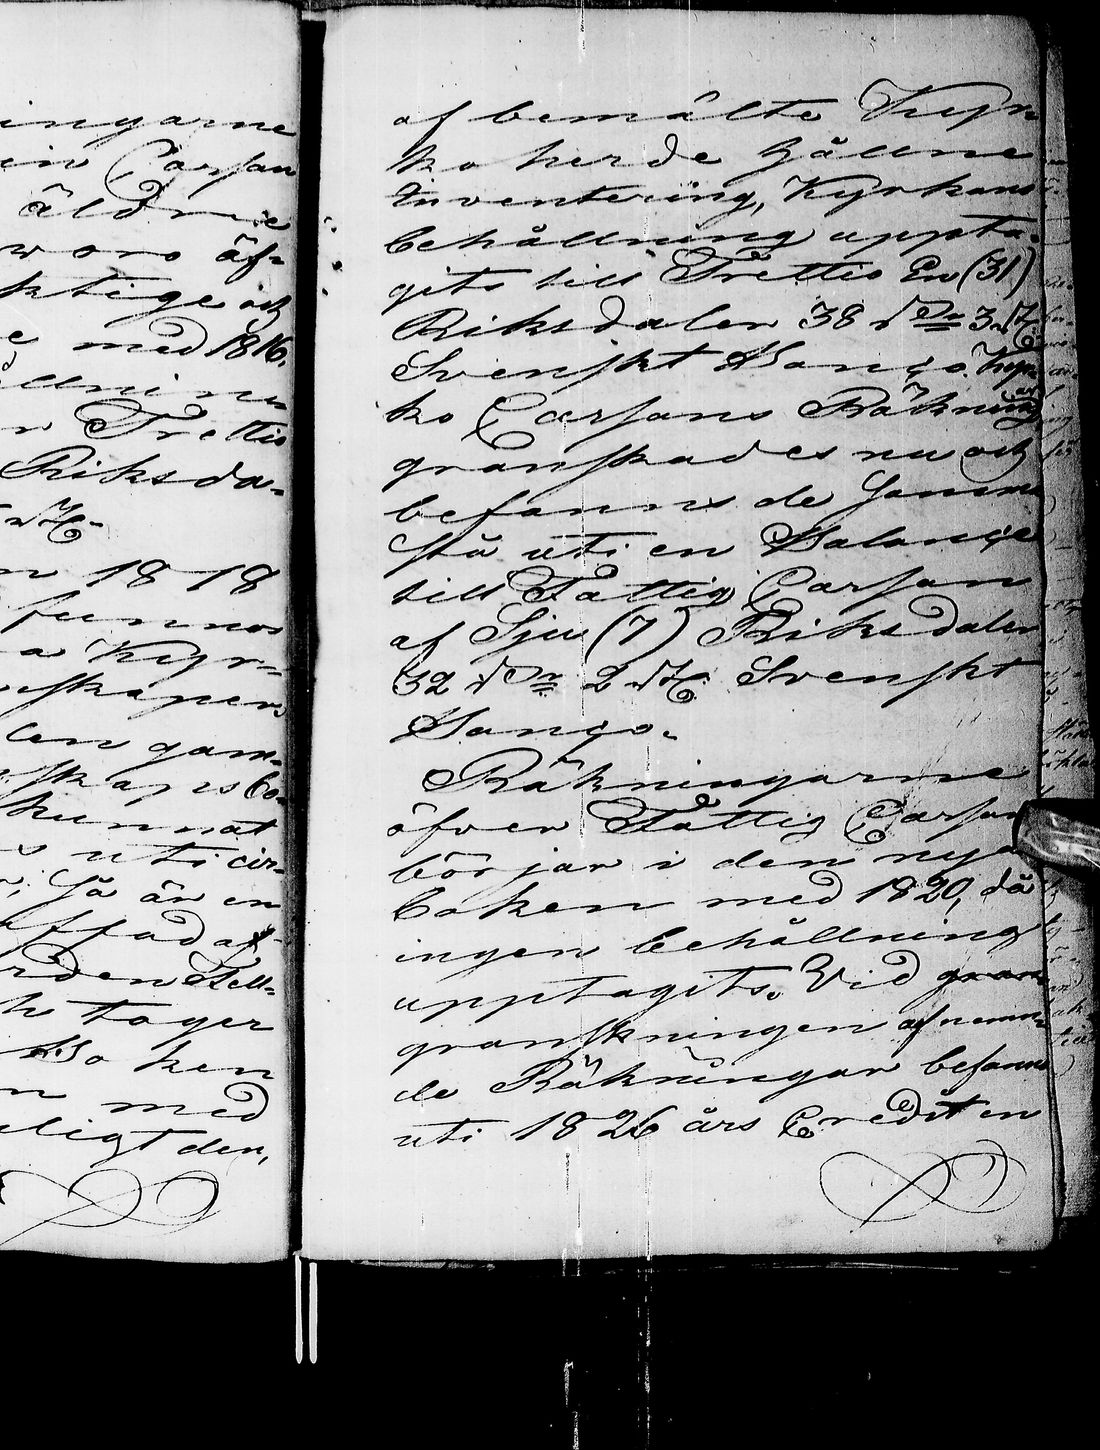 ingarne
in Carsan
äldrie
woro äf-
ktige och
med 1816.
llnin
Trettio
Riksda-
18 18
funnos
a Kyr-
nskapens
len gam-
skapsbo-
kunnat
uti cir-
Så är en
rden Häll-
h tager
Bo ken
med
ligt den,
af bemälte Kyr
ko herde hållne
Inventering, Kyrkans
behållning uppta-
gits till Trettio En (31)
Riksdaler 38 sr 3 rst
Svenskt Banço. Kyr
ko Carsans Räkning
ar
granskades nu och
befanns de samma
stå uti en Balançe
till Fattig Carsan
af Sju (7) Riksdaler
32 sr 2 rst Svenskt
Banço.
Räkningarne
öfver Fattig Carsan
börjar i den nya
boken med 1820, då
ingen behållning
upptagits. Vid gran
granskningen af nemn
de Räkningar befanns
uti 1826 års Credit en